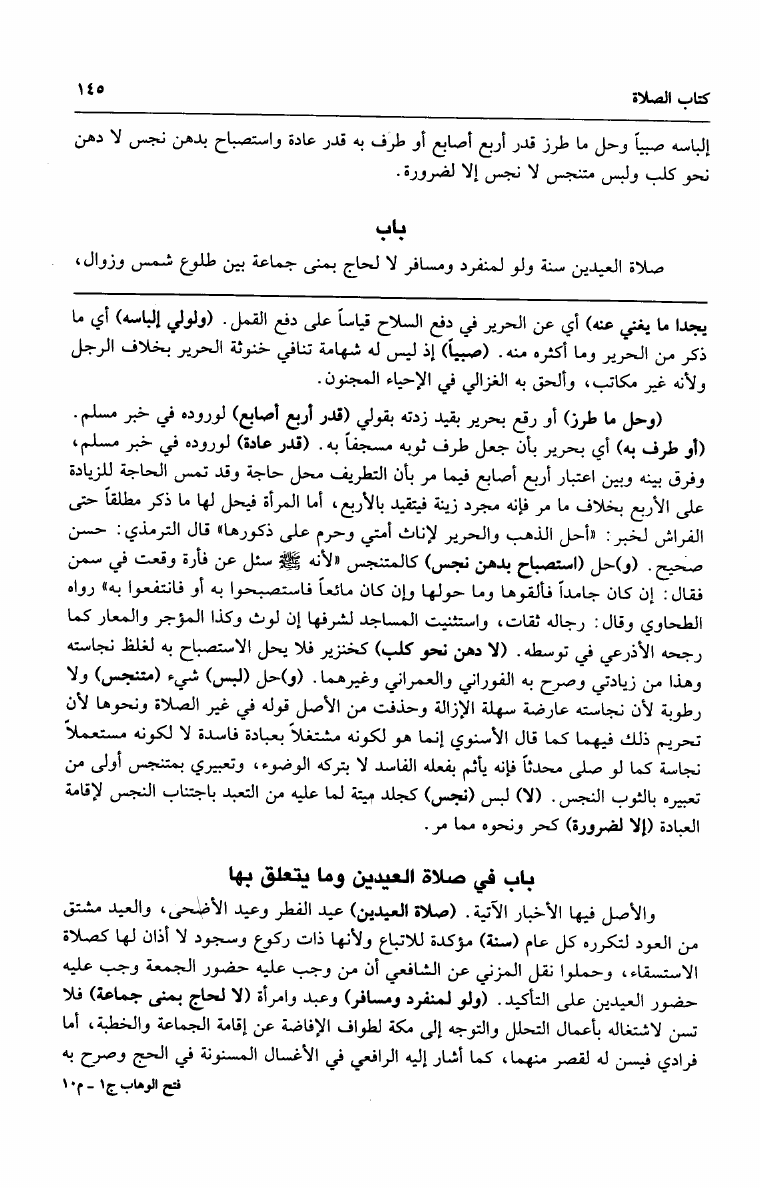 كتاب الصلاة ١٤٥
إلباسه صبياً وحل ما طرز قدر أربع أصابع أو طرف به قدر عادة واستصباح بدهن نجس لا دهن
نحو كلب ولبس متنجس لا نجس إلا لضرورة.
باب
صلاة العيدين سنة ولو لمنفرد ومسافر لا لحاج بمنى جماعة بين طلوع شمس وزوال،
يجدا ما يغني عنه) أي عن الحرير في دفع السلاح قياساً على دفع القمل. (ولولي إلباسه) أي ما
ذكر من الحرير وما أكثره منه. (صبياً) إذ ليس له شهامة تنافي خنوثة الحرير بخلاف الرجل
ولأنه غير مكاتب، وألحق به الغزالي في الإحياء المجنون.
(وحل ما طرز) أو رقع بحرير بقيد زدته بقولي (قدر أربع أصابع) لوروده في خبر مسلم.
(أو طرف به) أي بحرير بأن جعل طرف ثوبه مسجفاً به. (قدر عادة) لوروده في خبر مسلم،
وفرق بينه وبين اعتبار أربع أصابع فيما مر بأن التطريف محل حاجة وقد تمس الحاجة للزيادة
على الأربع بخلاف ما مر فإنه مجرد زينة فيتقيد بالأربع، أما المرأة فيحل لها ما ذكر مطلقاً حتى
الفراش لخبر: «أحل الذهب والحرير لإناث أمتي وحرم على ذكورها» قال الترمذي: حسن
صحيح. (و)حل (استصباح بدهن نجس) كالمتنجس «لأنه ﷺ سئل عن فأرة وقعت في سمن
فقال: إن كان جامداً فألقوها وما حولها وإن كان مائعاً فاستصبحوا به أو فانتفعوا به» رواه
الطحاوي وقال: رجاله ثقات، واستثنيت المساجد لشرفها إن لوث وكذا المؤجر والمعار كما
رجحه الأذرعي في توسطه. (لا دهن نحو كلب) كخنزير فلا يحل الاستصباح به لغلظ نجاسته
وهذا من زيادتي وصرح به الفوراني والعمراني وغيرهما. (و)حل (لبس) شيء (متنجس) ولا
رطوبة لأن نجاسته عارضة سهلة الإزالة وحذفت من الأصل قوله في غير الصلاة ونحوها لأن
تحريم ذلك فيهما كما قال الأسنوي إنما هو لكونه مشتغلاً بعبادة فاسدة لا لكونه مستعملاً
نجاسة كما لو صلى محدثاً فإنه يأثم بفعله الفاسد لا بتركه الوضوء، وتعبيري بمتنجس أولى من
تعبيره بالثوب النجس. (لا) لبس (نجس) كجلد ميتة لما عليه من التعبد باجتناب النجس لإقامة
العبادة (إلا لضرورة) كحر ونحوه مما مر.
باب في صلاة العيدين وما يتعلق بها
والأصل فيها الأخبار الآتية. (صلاة العيدين) عيد الفطر وعيد الأضحى، والعيد مشتق
من العود لتكرره كل عام (سنة) مؤكدة للاتباع ولأنها ذات ركوع وسجود لا أذان لها كصلاة
الاستسقاء، وحملوا نقل المزني عن الشافعي أن من وجب عليه حضور الجمعة وجب عليه
حضور العيدين على التأكيد. (ولو لمنفرد ومسافر) وعبد وامرأة (لا لحاج بمنى جماعة) فلا
تسن لاشتغاله بأعمال التحلل والتوجه إلى مكة لطواف الإفاضة عن إقامة الجماعة والخطبة، أما
فرادي فيسن له لقصر منهما، كما أشار إليه الرافعي في الأغسال المسنونة في الحج وصرح به
فتح الوهاب ج١ - م١٠